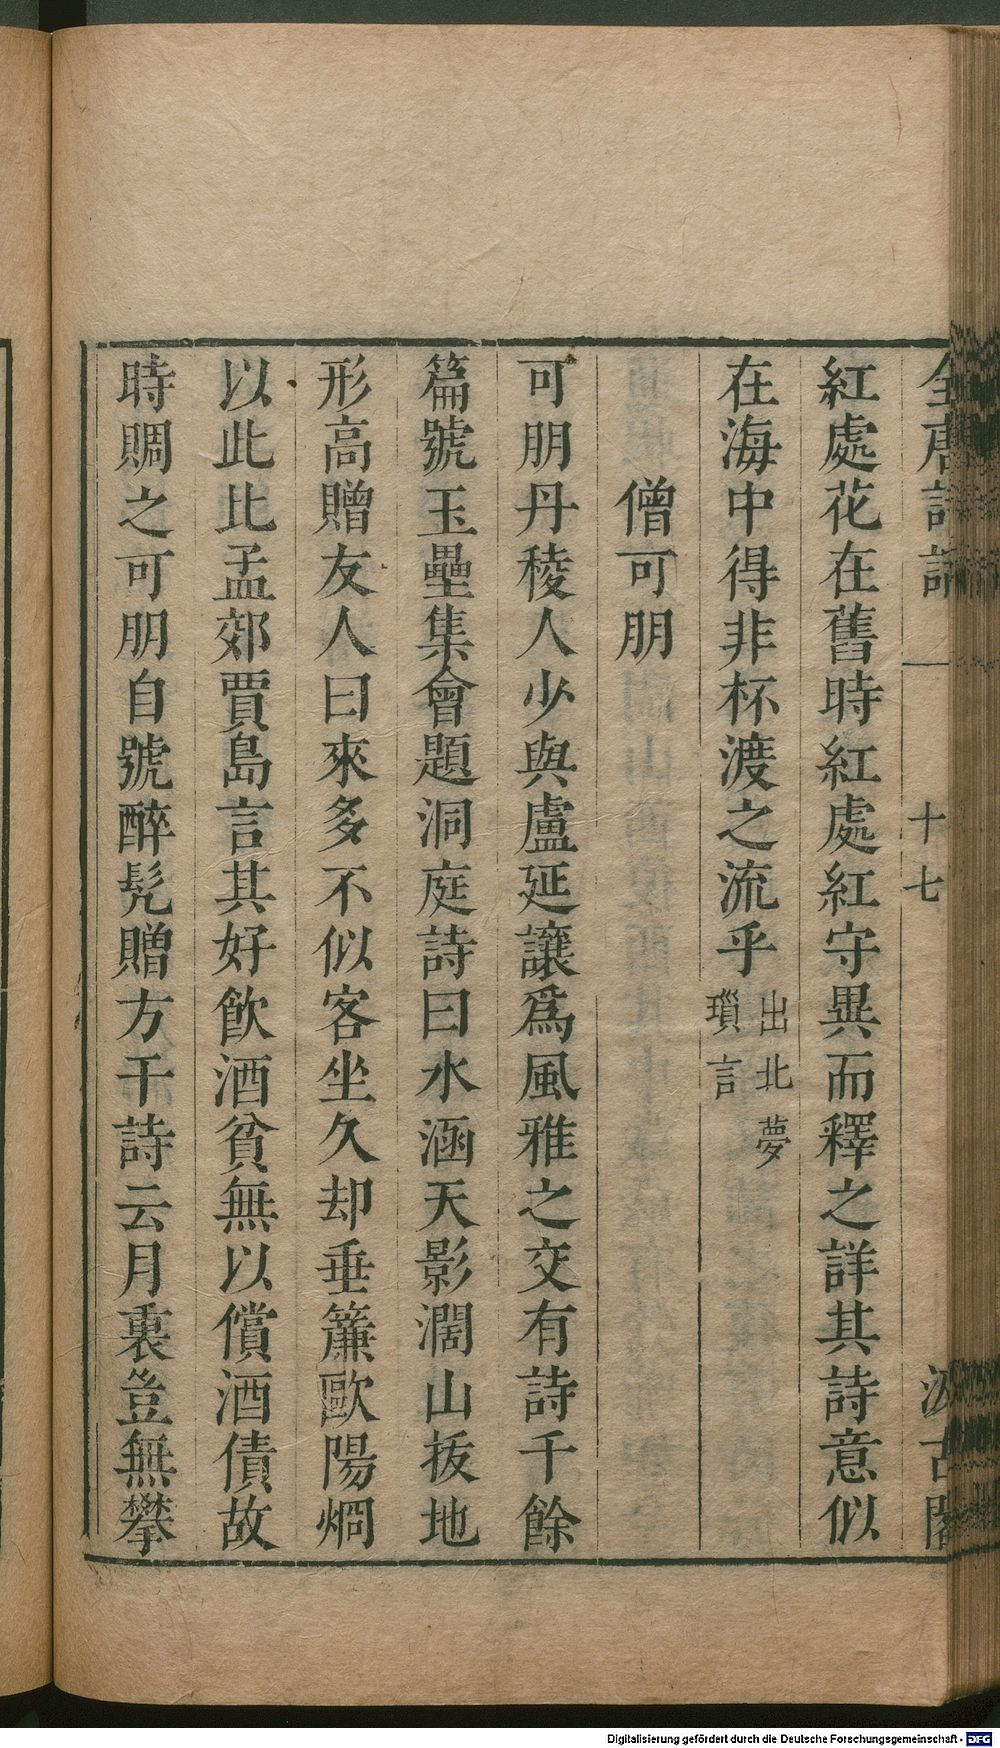 全唐詩話 一 十七 汲古閣
紅處花在舊時紅處紅守異而釋之詳其詩意似
在海中得非杯渡之流乎出北夢瑣言
僧可朋
可朋丹稜人少與盧延讓爲風雅之交有詩千餘
篇號玉壘集會題洞庭詩曰水涵天影濶山㧞地
形高贈友人曰來多不似客坐久却垂簾歐陽烱
以此比孟郊賈島言其好飲酒貧無以償酒債故
時賙之可朋自號醉髠贈方干詩云月裏豈無攀
Digitalisierung gefördert durch die Deutsche Forschungsgemeinschaft - DFG